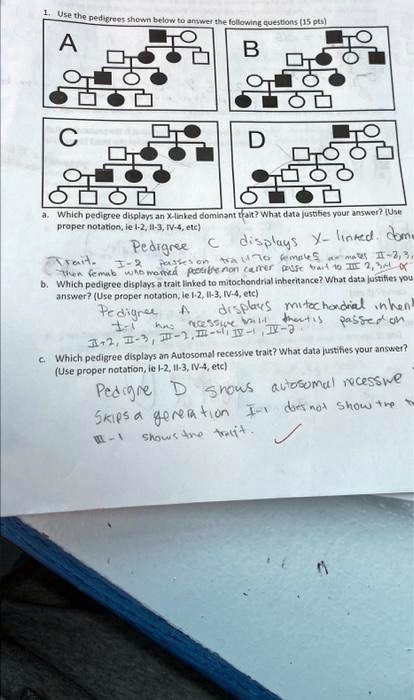 1. Use the pedigrees shown below to answer the following questions (15 pts)
A
B
C
D
a. Which pedigree displays an X-linked dominant trait? What data justifies your answer? (Use
proper notation, ie I-2, II-3, IV-4, etc)
Pedigree C displays X-linked. dom
Trait. I-2 passes on trait to females
b. Which pedigree displays a trait linked to mitochondrial inheritance? What data justifies you
answer? (Use proper notation, ie I-2, II-3, IV-4, etc)
Pedigree A displays mitochondrial inheri
I-1 has passed on
II-2, II-3, III-2, III-4, IV-1, IV-2
c. Which pedigree displays an Autosomal recessive trait? What data justifies your answer?
(Use proper notation, ie I-2, II-3, IV-4, etc)
Pedigree D shows autosomal recessive
Skips a generation I-1 does not show the
III-1 shows the trait.